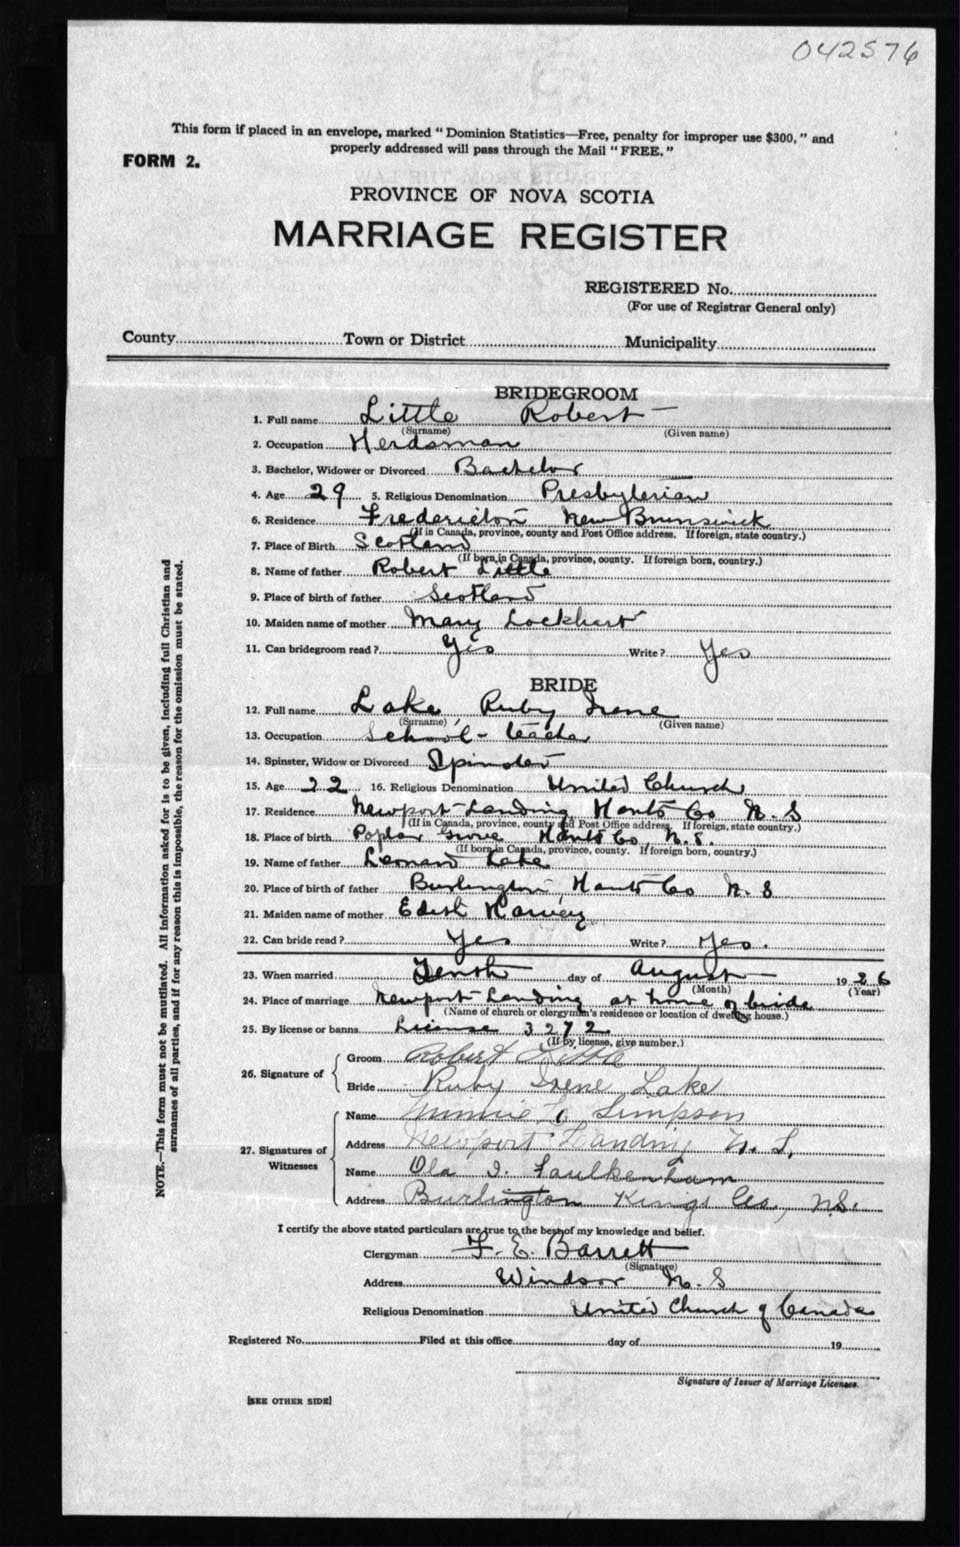 042576
This form if placed in an envelope, marked "Dominion Statistics—Free, penalty for improper use $300," and
properly addressed will pass through the Mail "FREE."
FORM 2.
PROVINCE OF NOVA SCOTIA
MARRIAGE REGISTER
REGISTERED No.
(For use of Registrar General only)
County Town or District Municipality
BRIDEGROOM
1. Full name Little Robert
(Surname) (Given name)
2. Occupation Herdsman
3. Bachelor, Widower or Divorced Bachelor
4. Age 29 5. Religious Denomination Presbyterian
6. Residence Fredericton New Brunswick
(If in Canada, province, county and Post Office address. If foreign, state country.)
7. Place of Birth Scotland
(If born in Canada, province, county. If foreign born, country.)
8. Name of father Robert Little
9. Place of birth of father Scotland
10. Maiden name of mother Mary Lockhart
11. Can bridegroom read? Yes Write? Yes
BRIDE
12. Full name Lake Ruby Irene
(Surname) (Given name)
13. Occupation School-teacher
14. Spinster, Widow or Divorced Spinster
15. Age 22 16. Religious Denomination United Church
17. Residence Newport Landing Hants Co N.S
(If in Canada, province, county and Post Office address. If foreign, state country.)
18. Place of birth Poplar Grove Hants Co, N.S.
(If born in Canada, province, county. If foreign born, country.)
19. Name of father Leonard Lake
20. Place of birth of father Burlington Hants Co N.S
21. Maiden name of mother Edith Harvey
22. Can bride read? Yes Write? Yes.
23. When married Tenth day of August 1926
(Month) (Year)
24. Place of marriage Newport Landing at home of bride
(Name of church or clergyman's residence or location of dwelling house.)
25. By license or banns License 3272
(If by license, give number.)
26. Signature of Groom Robert Little
Bride Ruby Irene Lake
27. Signatures of Witnesses Name Minnie L. Simpson
Address Newport Landing N.S,
Name Ola I. Faulkenham
Address Burlington Kings Co., N.S.
I certify the above stated particulars are true to the best of my knowledge and belief.
Clergyman F. E. Barrett
(Signature)
Address Windsor N.S
Religious Denomination United Church of Canada
Registered No. Filed at this office day of 19
Signature of Issuer of Marriage Licenses.
[SEE OTHER SIDE]
NOTE.—This form must not be mutilated. All information asked for is to be given, including full Christian and
surnames of all parties, and if for any reason this is impossible, the reason for the omission must be stated.